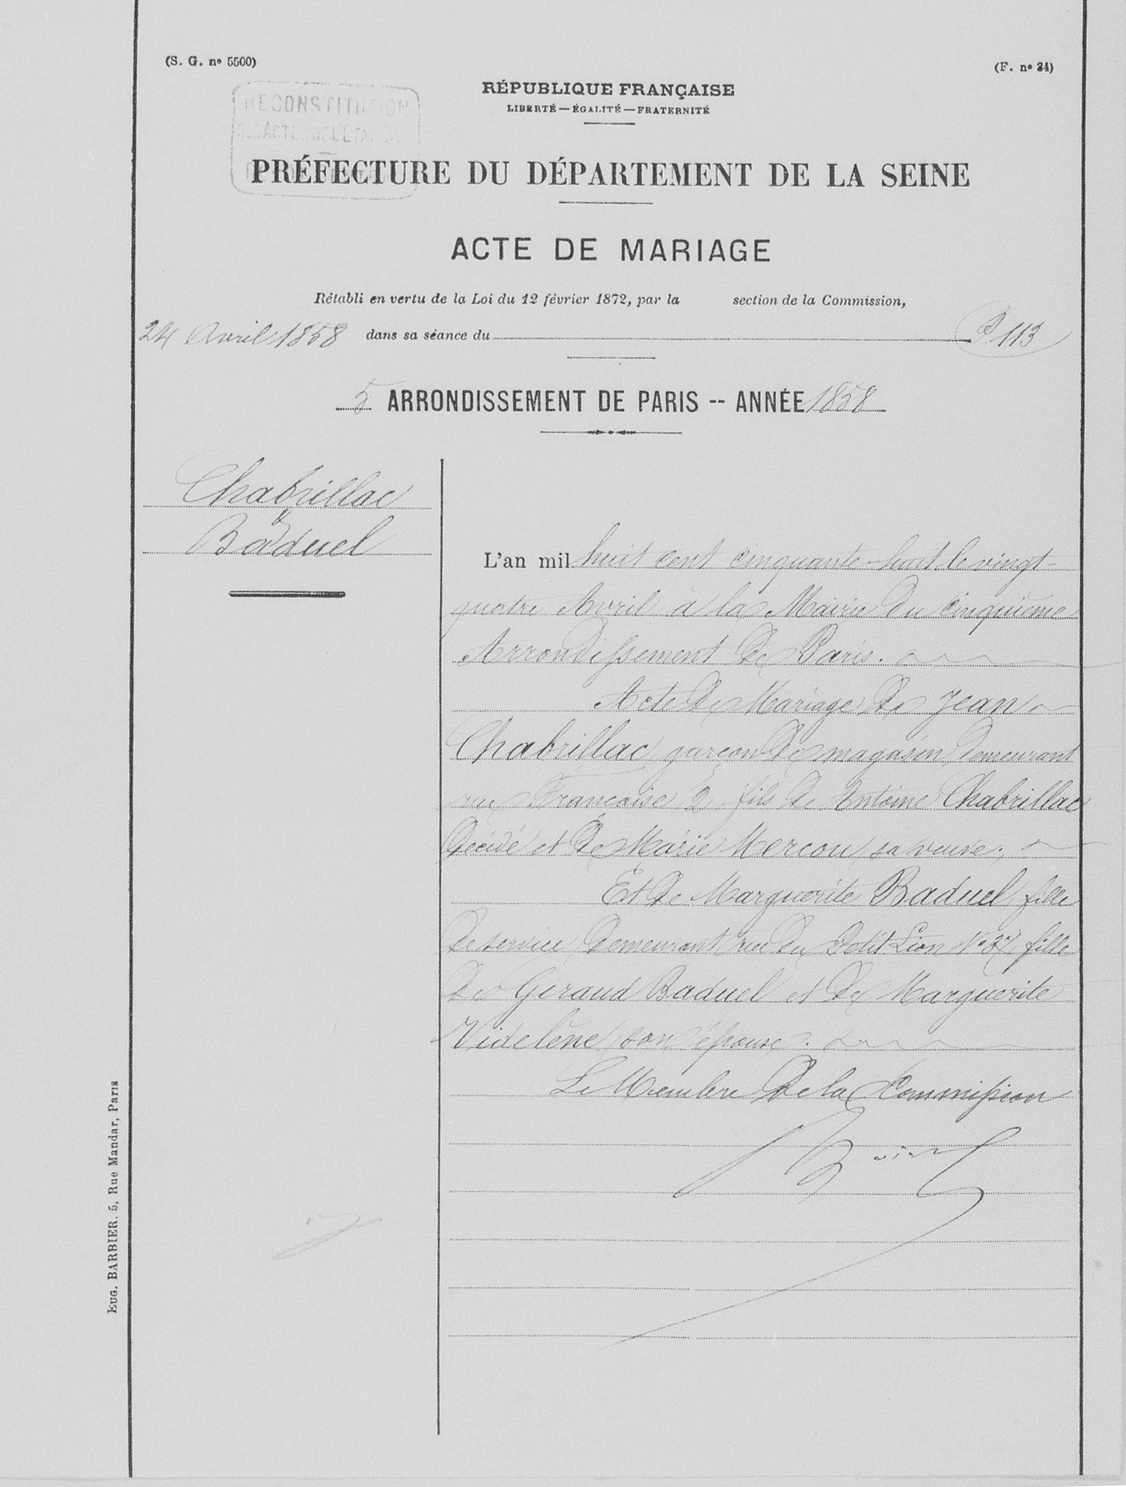 (S. G. nº 5500)
(F. nº 24)
RÉPUBLIQUE FRANÇAISE
LIBERTÉ — ÉGALITÉ — FRATERNITÉ
RECONSTITUTION
PRÉFECTURE DU DÉPARTEMENT DE LA SEINE
ACTE DE MARIAGE
Rétabli en vertu de la Loi du 12 février 1872, par la section de la Commission,
24 Avril 1858 dans sa séance du 113
5 ARRONDISSEMENT DE PARIS -- ANNÉE 1858
Chabrillac
&
Baduel
L'an mil huit cent cinquante-huit le vingt-
quatre Avril à la Mairie du cinquième
Arrondissement de Paris.
Acte de Mariage de Jean
Chabrillac garçon de magasin demeurant
rue Française 2 fils de Antoine Chabrillac
décédé et de Marie Mercou sa veuve.
Et de Marguerite Baduel fille
de service demeurant rue du Petit Lion Nº fille
de Geraud Baduel et de Marguerite
Videlène son épouse.
Le Membre de la Commission
EUG. BARBIER, 5, Rue Mandar, Paris